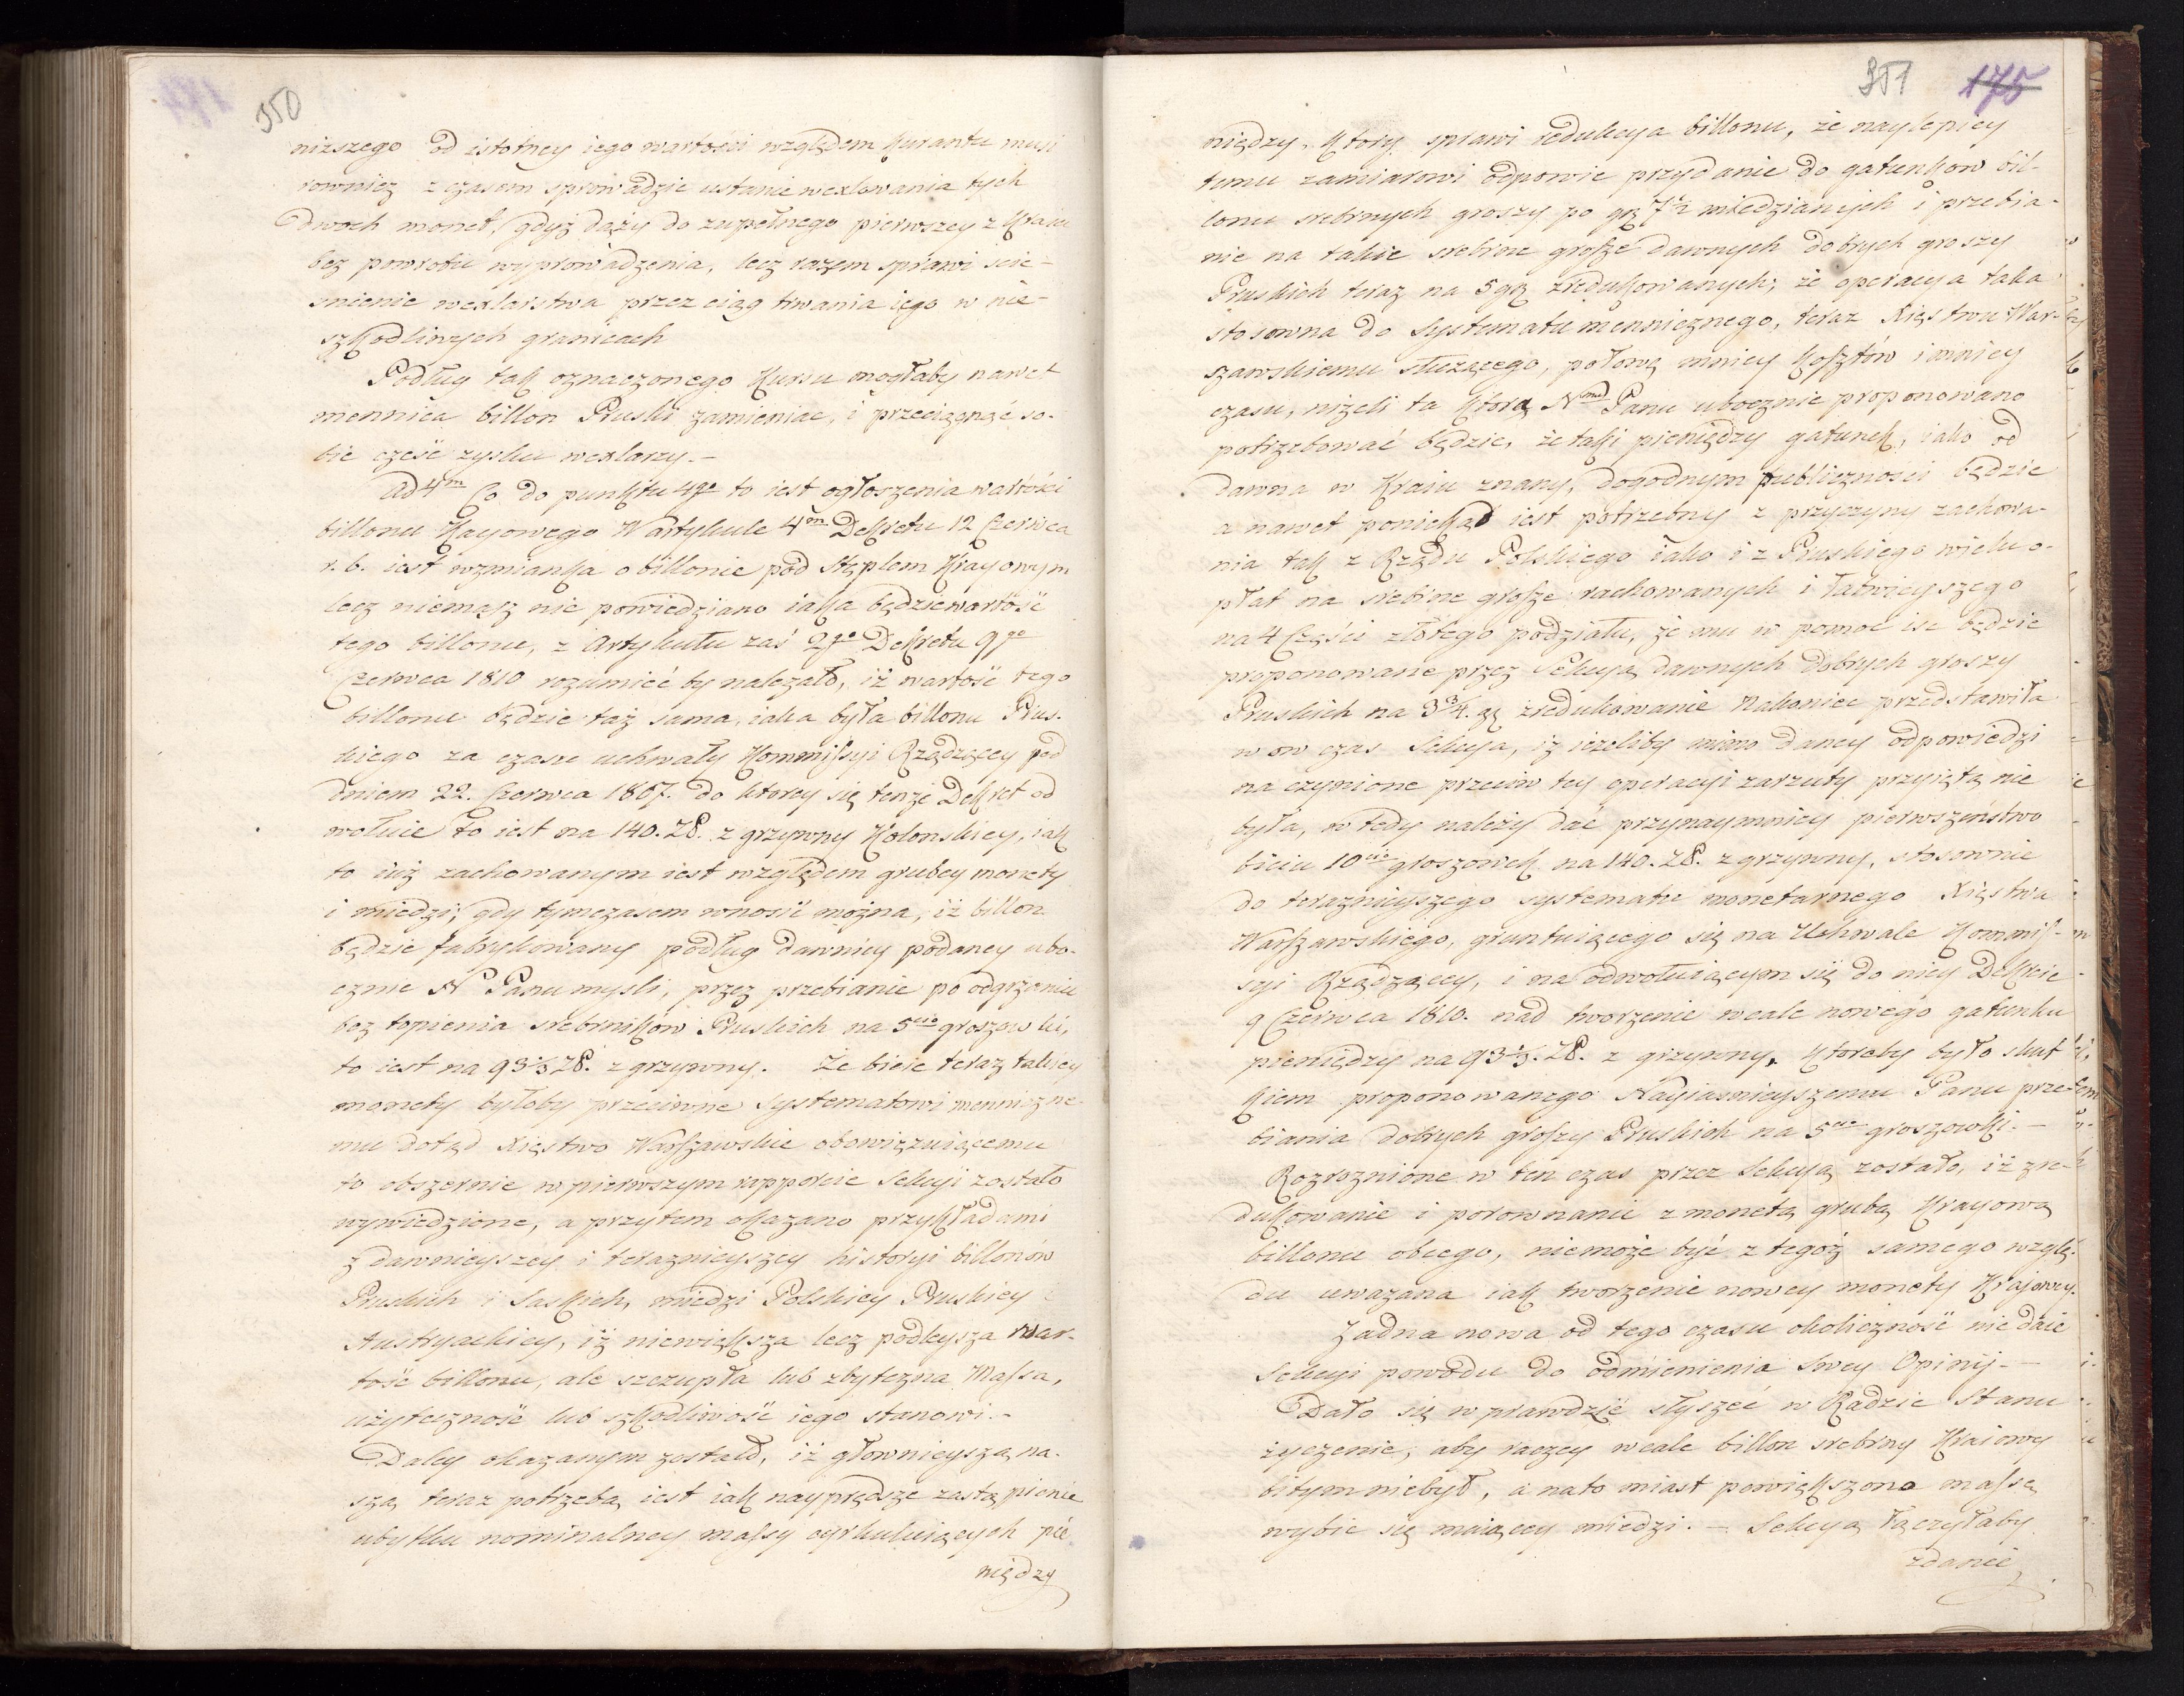 350
niższego od istotney iego wartości względem Kurantu musi
rowniez z czasem sprowadzic ustanie wexlowania tych
dwoch monet, gdyż dąży do zupełnego pierwszey z Kraiu
bez powrotu wyprowadzenia, lecz razem sprawi scie-
snienie wexlarstwa przez ciąg trwania iego w nie-
szkodliwych granicach
Podług tak oznaczonego Kursu mogłaby nawet
mennica billon Pruski zamieniac, i przeciągnąć so-
bie część zysku wexlarzy.-
Ad 4m Co do punktu 4go to iest ogłoszenia wartości
billonu Krayowego W artykule 4m Dekretu 12 Czerwca
r. b. iest wzmianka o billonie pod Stęplem Krayowym
lecz niemasz nic powiedziano iaka będzie wartość
tego billonu, z Artykułu zaś 2go Dekretu 9go
Czerwca 1810 rozumieć by należało, iż wartość tego
billonu będzie taż sama, iaka była billonu Prus-
kiego za czasu uchwały Kommissyi Rządzącey pod
dniem 22. Czerwca 1807. do ktorey się tenże Dekret od
wołuie to iest na 140. Zł. z grzywny Kolonskiey, iak
to iuż zachowanym iest względem grubey monety
i miedzi; gdy tymczasem wnosić można, iż billon
będzie fabrykowany podług dawniey podaney ubo-
cznie N Panu mysli, przez przebianie po odgrzaniu
bez topienia srebrników Pruskich na 5cio groszowki,
to iest na 93⅓ Zł. z grzywny. Że bicie teraz takiey
monety byłoby przeciwne systematowi menniczne-
mu dotąd Xięstwo Warszawskie obowięzuiącemu
to obszernie w pierwszym rapporcie Sekcyi zostało
wywiedzione, a przytem okazano przykładami
z dawnieyszey i teraznieyszey historyi billonow
Pruskich i Saskich, miedzi Polskiey Pruskiey i
Austryackiey, iż niewiększa lecz podleysza war-
tość billonu, ale szczupła lub zbyteczna Massa,
użyteczność lub szkodliwość iego stanowi.-
Daley okazanym zostało, iż głownieyszą na-
szą teraz potrzebą iest iak nayprędsze zastąpienie
ubytku nominalney massy cyrkuluiących pie
niędzy
351 175
niędzy, ktory sprawi redukcya billonu, że naylepiey
temu zamiarowi odpowie przydanie do gatunkow bil-
lonu srebrnych groszy po gr 7½ miedzianych i przebia-
nie na takie srebrne grosze dawnych dobrych groszy
Pruskich teraz na 5 gr zredukowanych; że operacya taka
stosowna do Systematu mennicznego, teraz Xięstwu War-
szawskiemu służącego, połową mniey kosztów i mniey
czasu, niżeli ta którą Nmu Panu ubocznie proponowano
potrzebować będzie, że taki pieniędzy gatunek, iako od
dawna w Kraiu znany, dogodnym publiczności będzie
a nawet poniekąd iest potrzebny z przyczyny zachowa-
nia tak z Rządu Polskiego iako i z Pruskiego wielu o-
płat na srebrne grosze rachowanych i łatwieyszego
na 4 Części złotego podziału, że mu w pomoc isc będzie
proponowane przez Sekcyą dawnych dobrych groszy
Pruskich na 3¾. gr zredukowanie Nakoniec przedstawiła
w ow czas Sekcya, iż ieżeliby mimo daney odpowiedzi
na czynione przeciw tey operacyi zarzuty przyiętą nie
była, w tedy należy dac przynaymniey pierwszeństwo
biciu 10cio groszowek na 140. Zł. z grzywny, stosownie
do teraznieyszego systematu monetarnego Xięstwa
Warszawskiego, gruntuiącego się na Uchwale Kommis-
syi Rządzącey, i na odwołuiącym się do niey Dekrecie
9 Czerwca 1810. nad tworzenie wcale nowego gatunku
pieniędzy na 93⅓. Zł. z grzywny, ktoreby było skut
kiem proponowanego Nayiasnieyszemu Panu prze-
biania dobrych groszy Pruskich na 5cio groszowki.-
Rozroznione w ten czas przez Sekcyą zostało, iż zre-
dukowanie i porownanie z monetą grubą Krayową
billonu obcego, niemoże być z tegoż samego wzglę-
du uwazana iak tworzenie nowey monety Krajowey.
Żadna nowa od tego czasu okoliczność nie daie
Sekcyi powodu do odmienienia swey Opinij.-
Dało się w prawdzie słyszeć w Radzie Stanu
życzenie, aby raczey wcale billon srebrny Kraiowy
bitym niebył, a nato miast powiększono massę
wybic się maiącey miedzi. - Sekcya łączyłaby
zdanie